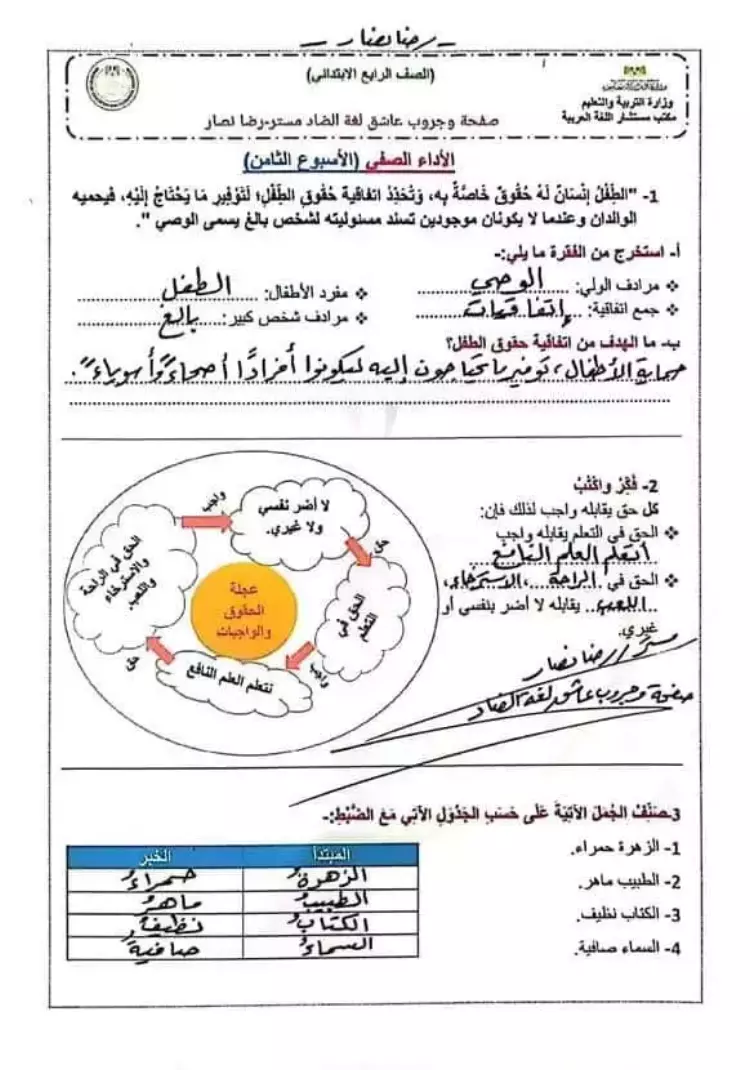 - رضا نصار -
(الصف الرابع الابتدائي)
وزارة التربية والتعليم
مكتب مستشار اللغة العربية
صفحة وجروب عاشق لغة الضاد مستر-رضا نصار
الأداء الصفي (الأسبوع الثامن)
1- "الطِّفْلُ إِنْسَانٌ لَهُ حُقُوقٌ خَاصَّةٌ بِه، وَتُتَّخَذُ اتفاقية حُقُوقِ الطِّفْلِ؛ لتَوْفِيرِ مَا يَحْتَاجُ إِلَيْهِ، فيحميه
الوالدان وعندما لا يكونان موجودين تسند مسئوليته لشخص بالغ يسمى الوصي ".
أ- استخرج من الفقرة ما يلي:-
❖ مرادف الولي: الوصي ❖ مفرد الأطفال: الطفل
❖ جمع اتفاقية: إتفاقيات ❖ مرادف شخص كبير: بالغ
ب- ما الهدف من اتفاقية حقوق الطفل؟
حماية الأطفال، توفير ما يحتاجون إليه ليكونوا أفرادًا أصحاءً وأسوياءً.
2- فَكِّرْ واكْتُبْ
كل حق يقابله واجب لذلك فإن:
❖ الحق في التعلم يقابله واجب
أتعلم العلم النافع
❖ الحق في الراحة، الاسترخاء،
اللعب يقابله لا أضر بنفسي أو
غيري.
مستر/ رضا نصار
صفحة وجروب عاشق لغة الضاد
واجب
لا أضر نفسي
ولا غيري.
حق
الحق في
التعلم
واجب
نتعلم العلم النافع
حق
الحق في الراحة
والاسترخاء
واللعب.
عجلة
الحقوق
والواجبات
3-صَنِّفْ الجُمَلَ الآتِيَةَ عَلَى حَسَبِ الجَدْوَلِ الآتِي مَعَ الضَّبْطِ:-
1- الزهرة حمراء.
2- الطبيب ماهر.
3- الكتاب نظيف.
4- السماء صافية.
المبتدأ الخبر
الزهرةُ حمراءُ
الطبيبُ ماهرٌ
الكتابُ نظيفٌ
السماءُ صافيةٌ